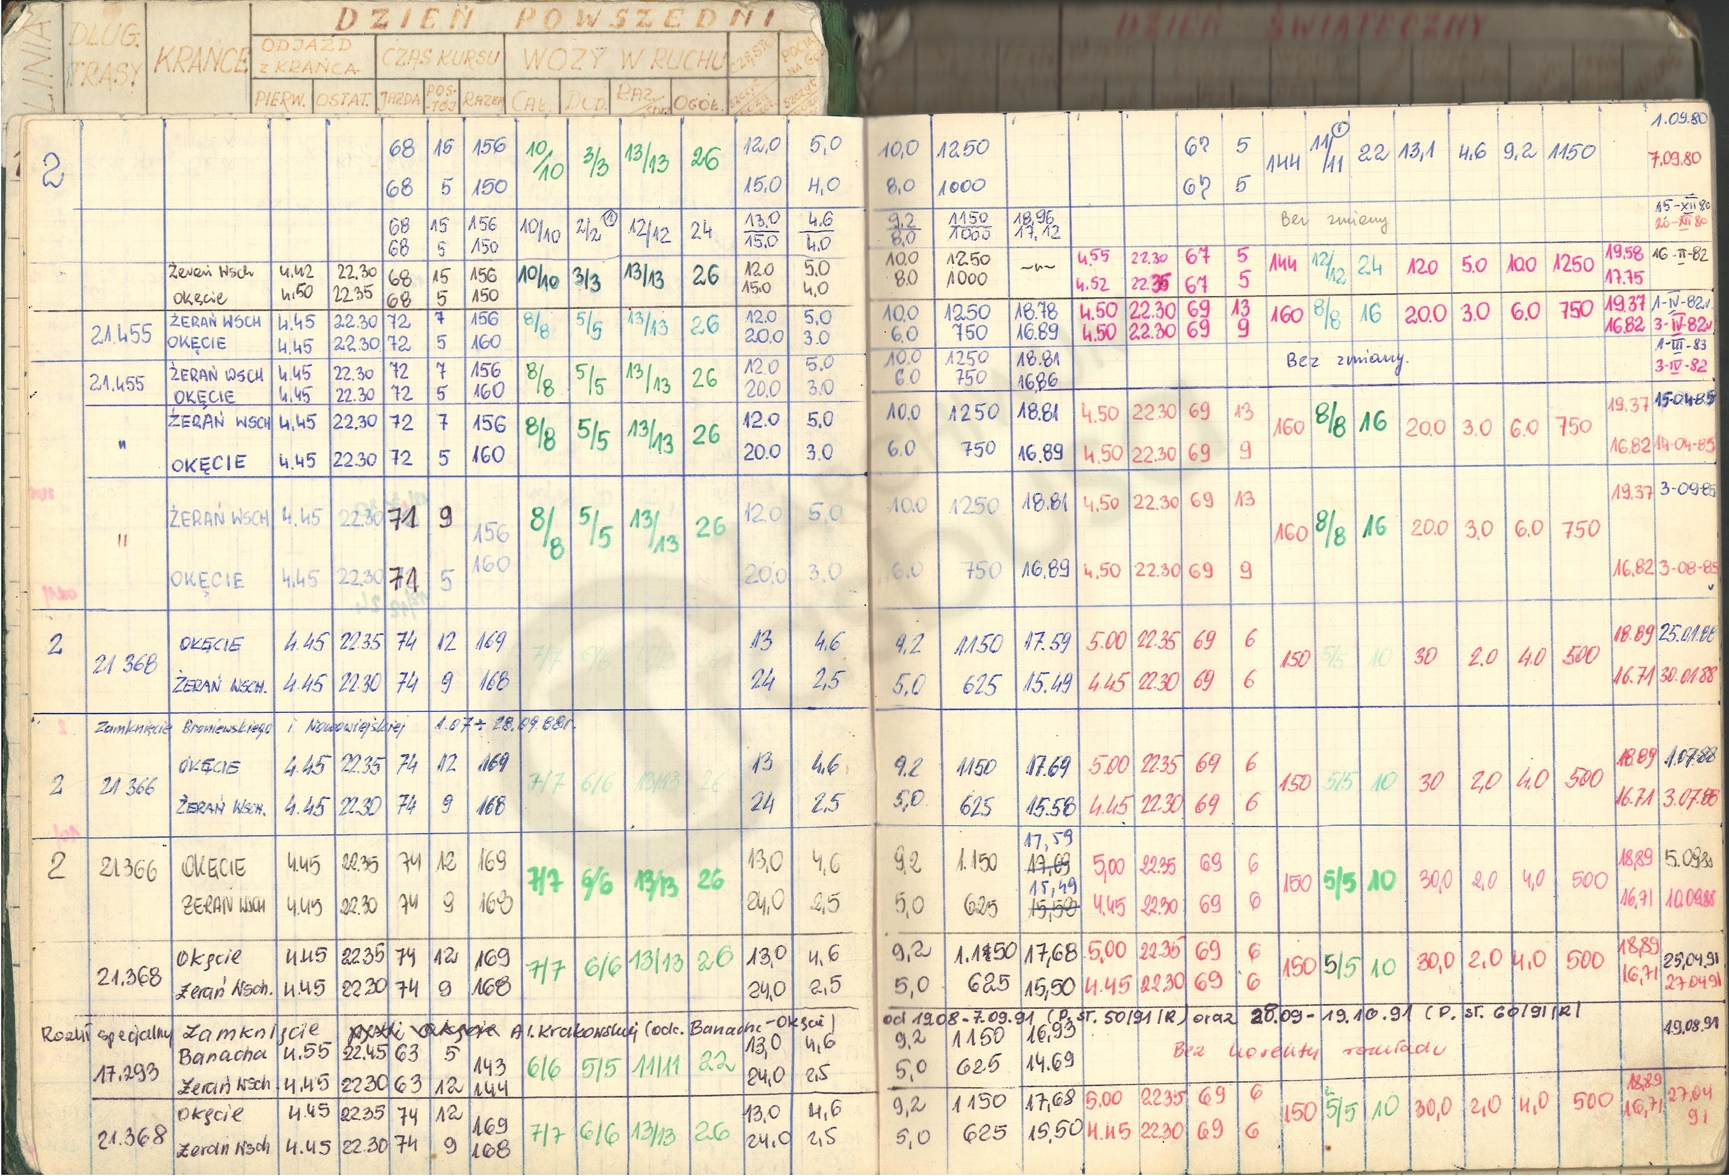 DZIEŃ POWSZEDNI DZIEŃ ŚWIĄTECZNY
LINIA DŁUG. TRASY KRAŃCE ODJAZD Z KRAŃCA CZAS KURSU WOZY W RUCHU
PIERW. OSTAT. JAZDA POS-TÓJ RAZEM CAŁ. DOD. RAZ. OGÓŁ.
1.09.80
2 68 15 156 10/10 3/3 13/13 26 12,0 5,0 10,0 1250 67 5 144 11/11 22 13,1 4,6 9,2 1150 7,09.80
68 5 150 15.0 4,0 8,0 1000 67 5
68 15 156 10/10 2/2 12/12 24 13,0 4.6 9.2 1150 18,96 Bez zmiany 15-XII 80
68 5 150 15.0 4.0 8,0 1000 17,12
Żerań Wsch 4.42 22.30 68 15 156 10/10 3/3 13/13 26 12.0 5,0 10.0 1250 4.55 22.30 67 5 144 12/12 24 12.0 5.0 10.0 1250 19.58 16-II-82
Okęcie 4.50 22.35 68 5 150 15.0 4,0 8.0 1000 4.52 22.35 67 5 17.75
21.455 ŻERAŃ WSCH 4.45 22.30 72 7 156 8/8 5/5 13/13 26 12.0 5,0 10.0 1250 18.78 4.50 22.30 69 13 160 8/8 16 20.0 3.0 6.0 750 19.37 1-IV-82r.
OKĘCIE 4.45 22.30 72 5 160 20.0 3.0 6.0 750 16.89 4.50 22.30 69 9 16.82 3-IV-82r
21.455 ŻERAŃ WSCH 4.45 22.30 72 7 156 8/8 5/5 13/13 26 12.0 5.0 10.0 1250 18.81 Bez zmiany. 1-III-83
OKĘCIE 4.45 22.30 72 5 160 20.0 3.0 6.0 750 16.86 3-IV-82
" ŻERAŃ WSCH 4.45 22.30 72 7 156 8/8 5/5 13/13 26 12.0 5,0 10.0 1250 18.81 4.50 22.30 69 13 160 8/8 16 20.0 3.0 6.0 750 19.37 15-04-85
OKĘCIE 4.45 22.30 72 5 160 20.0 3.0 6.0 750 16.89 4.50 22.30 69 9 16.82 14-04-85
" ŻERAŃ WSCH 4.45 22.30 71 9 156 8/8 5/5 13/13 26 12.0 5,0 10.0 1250 18.81 4,50 22.30 69 13 160 8/8 16 20.0 3.0 6.0 750 19.37 3-09-85
OKĘCIE 4.45 22.30 71 5 160 20.0 3.0 6.0 750 16.89 4,50 22.30 69 9 16.82 3-08-85
2 21 368 OKĘCIE 4.45 22.35 74 12 169 7/7 6/6 13/13 26 13 4.6 9.2 1150 17.59 5.00 22.35 69 6 150 5/5 10 30 2.0 4.0 500 18.89 25.01.88
ŻERAŃ WSCH. 4.45 22.30 74 9 168 24 2,5 5,0 625 15.49 4.45 22.30 69 6 16.71 30.01.88
Zamknięcie Broniewskiego i Nowowiejskiej 1.07 ÷ 28.09.88r.
2 21 366 OKĘCIE 4.45 22.35 74 12 169 7/7 6/6 13/13 26 13 4,6 9.2 1150 17.69 5.00 22.35 69 6 150 5/5 10 30 2,0 4.0 500 18.89 1.07.88
ŻERAŃ WSCH. 4.45 22.30 74 9 168 24 2.5 5,0 625 15.58 4.45 22.30 69 6 16.71 3.07.88
17,59
2 21.366 OKĘCIE 4.45 22.35 74 12 169 7/7 6/6 13/13 26 13,0 4,6 9,2 1.150 17,69 5,00 22.35 69 6 150 5/5 10 30,0 2,0 4,0 500 18,89 5.09.88
15,49
ŻERAŃ WSCH 4.45 22.30 74 9 168 24,0 2,5 5,0 625 15,58 4.45 22.30 69 6 16,71 10.09.88
21.368 Okęcie 4.45 22.35 74 12 169 7/7 6/6 13/13 26 13,0 4,6 9,2 1.150 17,68 5,00 22.35 69 6 150 5/5 10 30,0 2,0 4,0 500 18,89 25,04.91
Żerań Wsch. 4.45 22.30 74 9 168 24,0 2,5 5,0 625 15,50 4.45 22.30 69 6 16,71 27.04.91
Rozkł specjalny Zamknięcie Al. Krakowskiej (odc. Banacha-Okęcie) od 19.08-7.09.91 (P. ST. 50/91/R) oraz 28.09-19.10.91 (P. ST. 60/91/R)
17.293 Banacha 4.55 22.45 63 5 143 6/6 5/5 11/11 22 13,0 4,6 9,2 1150 16,93 Bez korekty rozkładu 19.08.91
Żerań Wsch 4.45 22.30 63 12 144 24,0 2,5 5,0 625 14.69
21.368 Okęcie 4.45 22.35 74 12 169 7/7 6/6 13/13 26 13,0 4,6 9,2 1150 17,68 5,00 22.35 69 6 150 5/5 10 30,0 2,0 4,0 500 18,89 27.04
Żerań Wsch 4.45 22.30 74 9 168 24,0 2,5 5,0 625 15,50 4.45 22.30 69 6 16,71 91